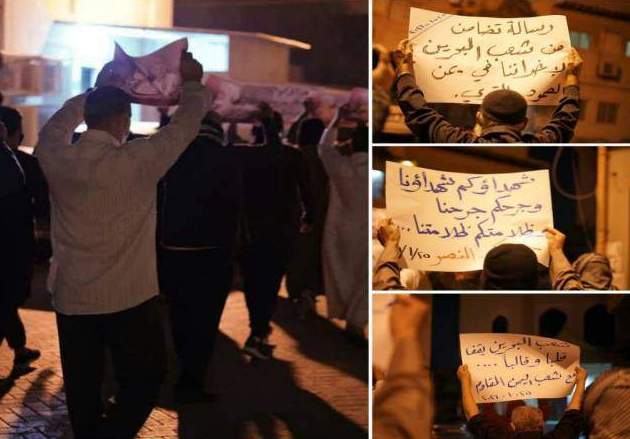 رسالة تضامن
من شعب البحرين
لإخواننا في يمن
الصمود والتحدي.
شهداؤكم شهداؤنا
وجرحكم جرحنا
وظلامتكم ظلامتنا...
النصر
شعب البحرين يقف
قلبا وقالبا ....
مع شعب اليمن المقاوم